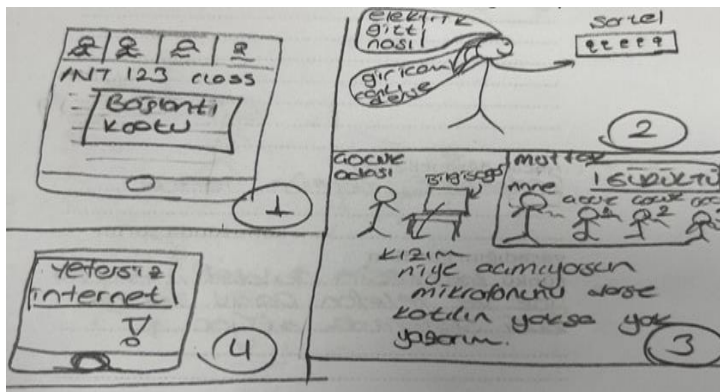 INT 123 class
Bağlantı
koptu
1
elektrik
gitti
nasıl
giricam
canlı
derse
sartel
2
çocuk
odası
bilgisayar
mutfak
GÜRÜLTÜ
anne
çocuk
çocuk
2
kızım
niye açmıyosun
mikrofonunu derse
katılın yoksa yok
yazarım.
3
Yetersiz
internet
!
4